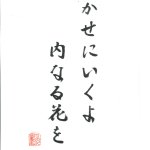 かせにいくよ
内なる花を